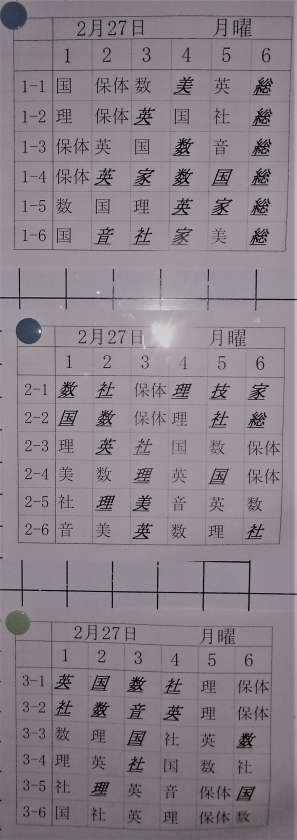 2月27日 月曜
1 2 3 4 5 6
1-1 国 保体 数 美 英 総
1-2 理 保体 英 国 社 総
1-3 保体 英 国 数 音 総
1-4 保体 英 家 数 国 総
1-5 数 国 理 英 家 総
1-6 国 音 社 家 美 総
2月27日 月曜
1 2 3 4 5 6
2-1 数 社 保体 理 技 家
2-2 国 数 保体 理 社 総
2-3 理 英 社 国 数 保体
2-4 美 数 理 英 国 保体
2-5 社 理 美 音 英 数
2-6 音 美 英 数 理 社
2月27日 月曜
1 2 3 4 5 6
3-1 英 国 数 社 理 保体
3-2 社 数 音 英 理 保体
3-3 数 理 国 社 英 数
3-4 理 英 社 国 数 社
3-5 社 理 英 音 保体 国
3-6 国 社 英 理 保体 数